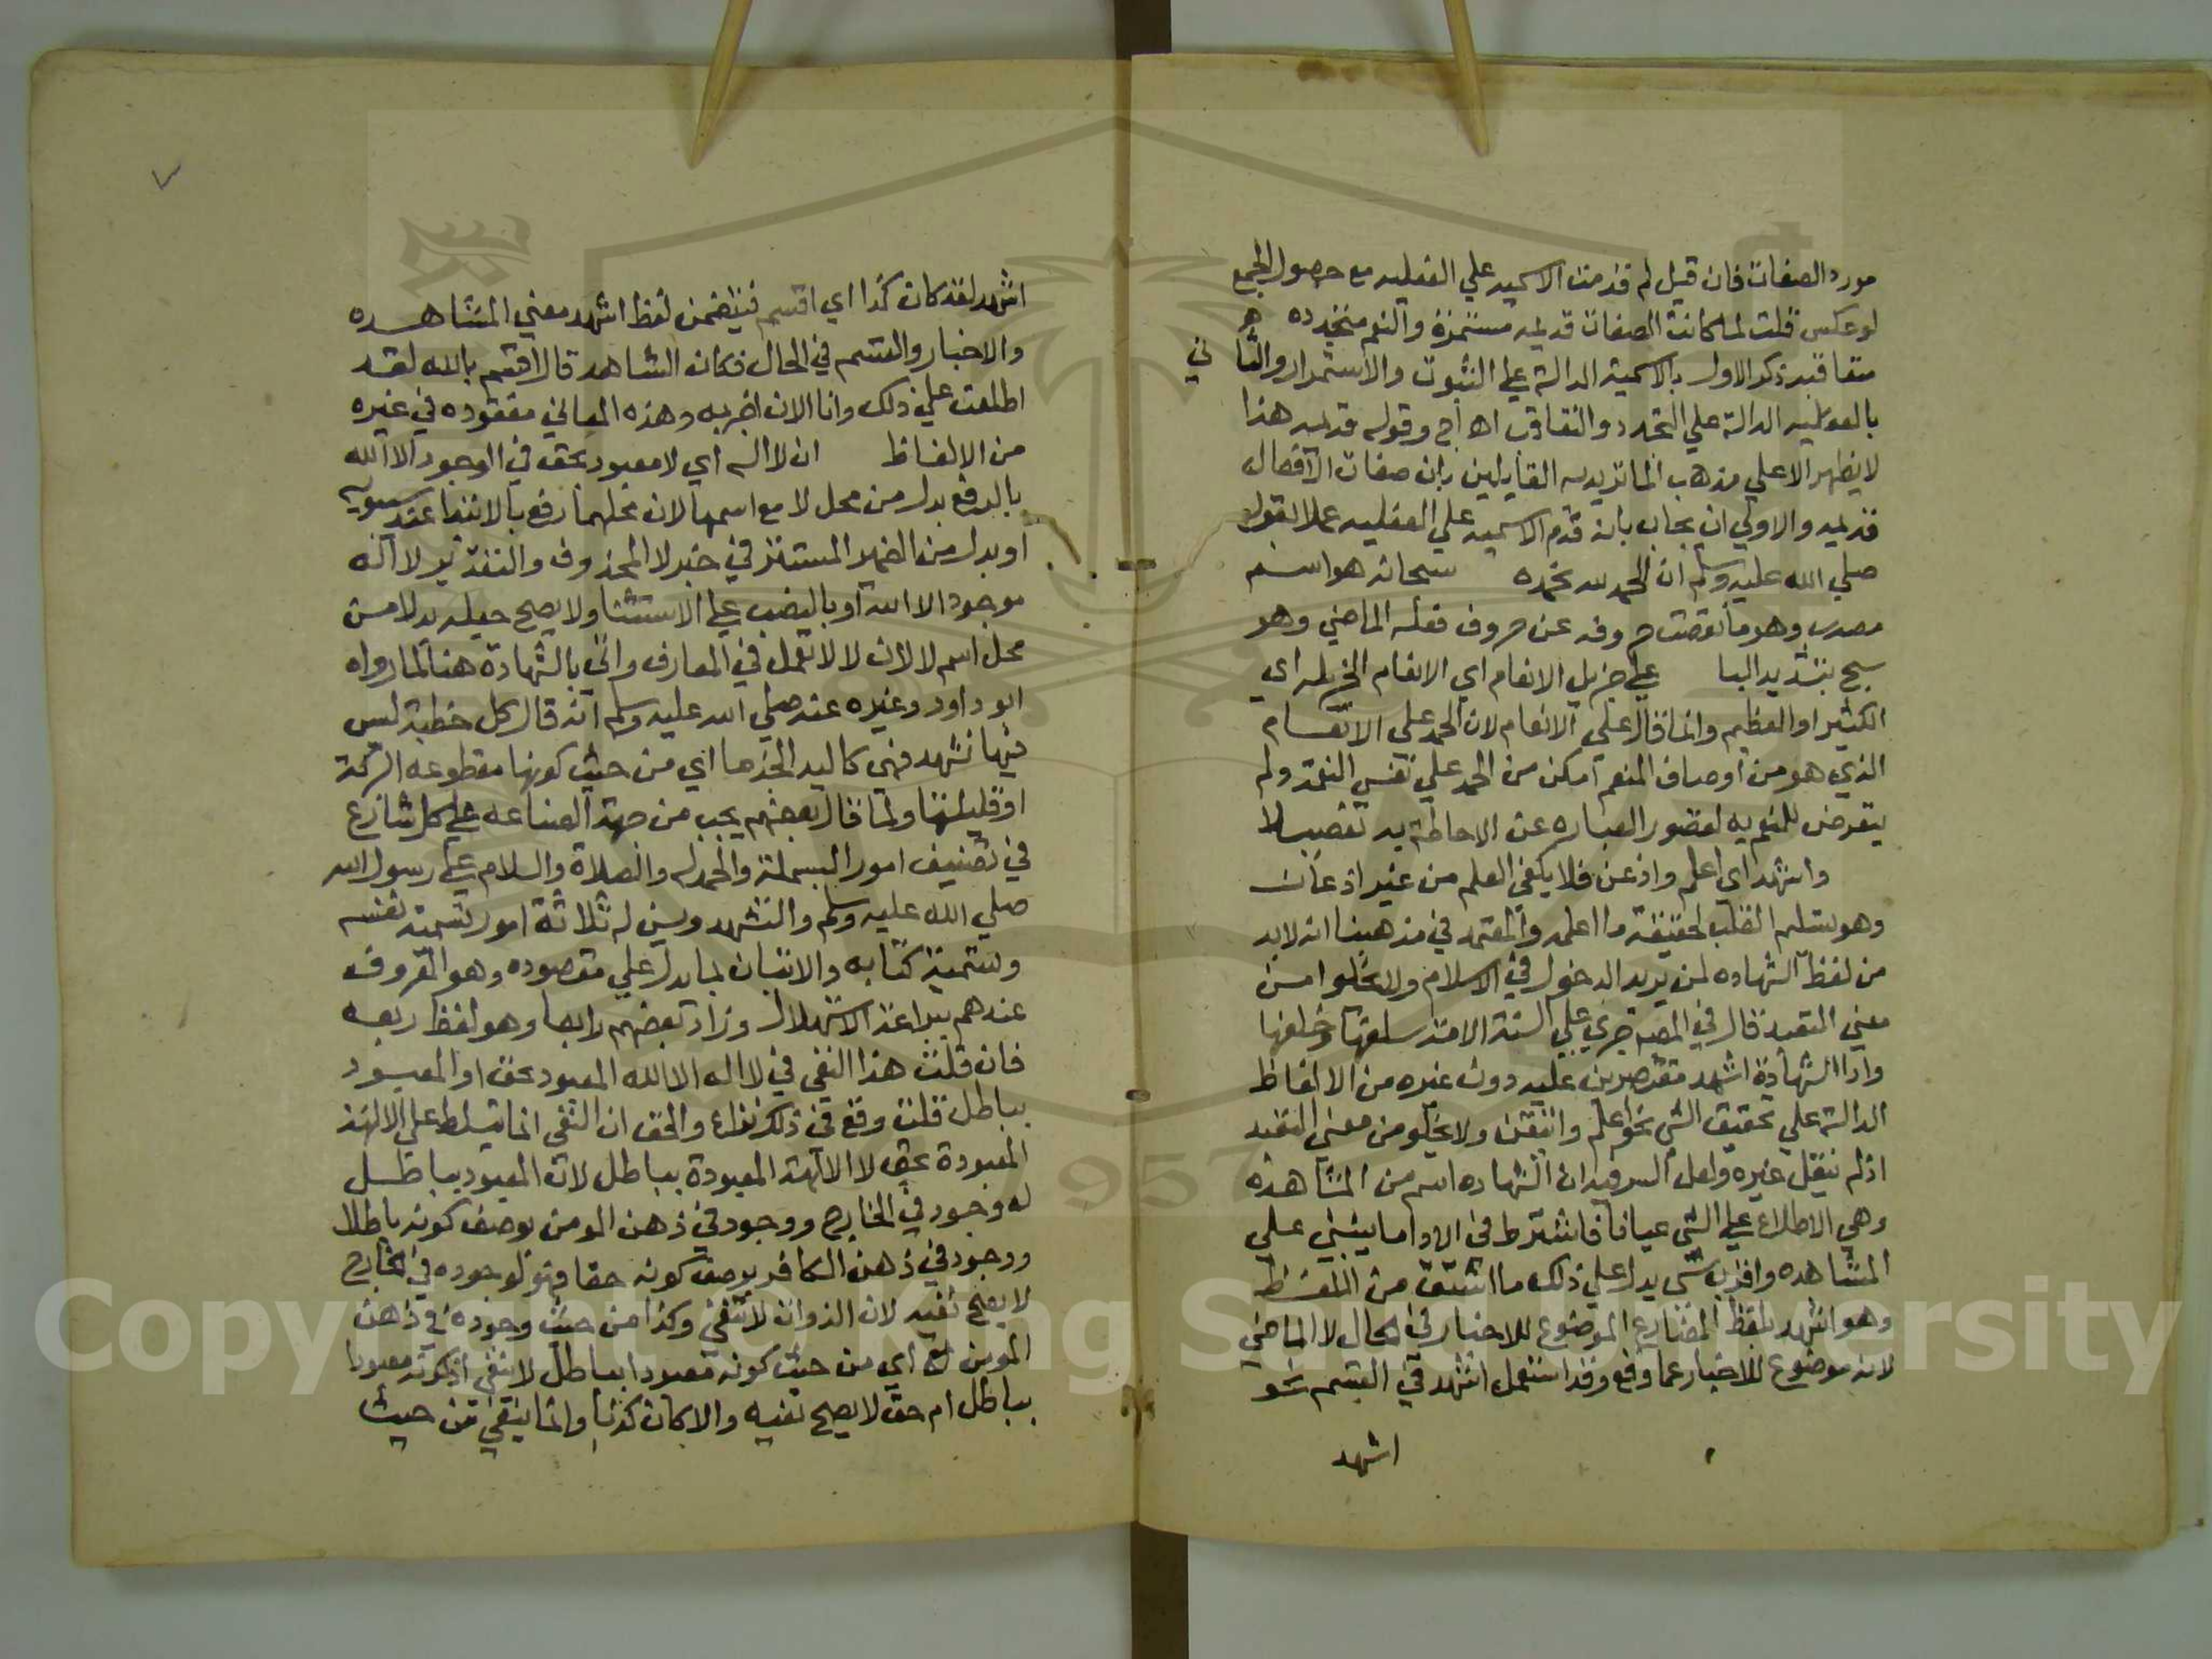 مورد الصفات فان قيل لم قدمت الاسميه علي الفعليه مع حصول الجمع
لو عكس قلت لما كانت الصفات قديمه مستمرة والنعم متجدده
متعاقبه ذكر الاول بالاسمية الدالة علي الثبوت والاستمرار والثاني
بالفعليه الدالة علي التجدد والتعاقب اه اج وقوله قديمه هذا
لا يظهر الا علي مذهب الماتريديه القايلين بان صفات الافعال
قديمه والاولي ان يجاب بانه قدم الاسميه علي الفعليه عملا بقوله
صلي الله عليه وسلم ان الحمد لله نحمده سبحانه هو اسم
مصدر وهو ما نقصت حروفه عن حروف فعله الماضي وهو
سبح بتشديد البا علي جزيل الانعام اي الانعام الجزيله اي
الكثير او العظيم وانما قال علي الانعام لان الحمد علي الانعام
الذي هو من اوصاف المنعم امكن من الحمد علي نفس النعمة ولم
يتعرض للمنعم به لقصور العباره عن الاحاطة به تفصيلا
واشهد اي اعلم واذعن فلا يكفي العلم من غير اذعان
وهو تسليم القلب لحقيقة ما اعلمه والمعتمد في مذهبنا انه لابد
من لفظ الشهاده لمن يريد الدخول في الاسلام ولا يخلوا من
معني التعبد قال في المصباح جري علي السنة الامة سلفها وخلفها
وادا الشهادة اشهد مقتصرين عليه دون غيره من الالفاظ
الدالة علي تحقيق الشي نحو اعلم واتيقن ولا يخلو من معني التعبد
اذ لم ينقل غيره ولعل السر فيه ان الشهاده اسم من المشاهده
وهي الاطلاع علي الشي عيانا فاشترط في الادا ما ينبي علي
المشاهده واقرب شي يدل علي ذلك ما اشتق من اللفظ
وهو اشهد بلفظ المضارع الموضوع للاخبار في الحال لا الماضي
لانه موضوع للاخبار عما وقع وقد استعمل اشهد في القسم نحو
اشهد
اشهد لقد كان كذا اي اقسم فيتضمن لفظ اشهد معني المشاهده
والاخبار والقسم في الحال فكان الشاهد قال اقسم بالله لقد
اطلعت علي ذلك وانا الان اخبر به وهذه المعاني مفقوده في غيره
من الالفاظ ان لا اله اي لا معبود بحق في الوجود الا الله
بالرفع بدل من محل لا مع اسمها لان محلهما رفع بالابتدا عند سيبويه
او بدل من الضمير المستتر في خبر لا المحذوف والتقدير لا اله
موجود الا الله او بالنصب علي الاستثنا ولا يصح جعله بدلا من
محل اسم لا لان لا لا تعمل في المعارف واتي بالشهادة هنا لما رواه
ابو داود وغيره عنه صلي الله عليه وسلم انه قال كل خطبة ليس
فيها تشهد فهي كاليد الجذما اي من حيث كونها مقطوعه البركة
او قليلتها ولما قال بعضهم يجب من جهة الصناعه علي كل شارع
في تصنيف امور البسملة والحمدله والصلاة والسلام علي رسول الله
صلي الله عليه وسلم والتشهد ويسن له ثلاثة امور تسمية نفسه
وتسمية كتابه والاتيان بما يدل علي مقصوده وهو المعروف
عندهم ببراعة الاستهلال وزاد بعضهم رابعا وهو لفظ وبعد
فان قلت هذا النفي في لا اله الا الله المعبود بحق او المعبود
بباطل قلت وقع في ذلك نزاع والحق ان النفي انما تسلط علي الالهة
المعبودة بحق لا الالهة المعبودة بباطل لان المعبود بباطل
له وجود في الخارج ووجود في ذهن المومن بوصف كونه باطلا
ووجود في ذهن الكافر بوصف كونه حقا فهو لوجوده في الخارج
لا يصح نفيه لان الذوات لا تنفي وكذا من حيث وجوده في ذهن
المومن اي من حيث كونه معبودا بباطل لا ينفي اذ كونه معبودا
بباطل ام حق لا يصح نفيه والا كان كذبا وانما ينفي من حيث
Copyright © King Saud University
1957